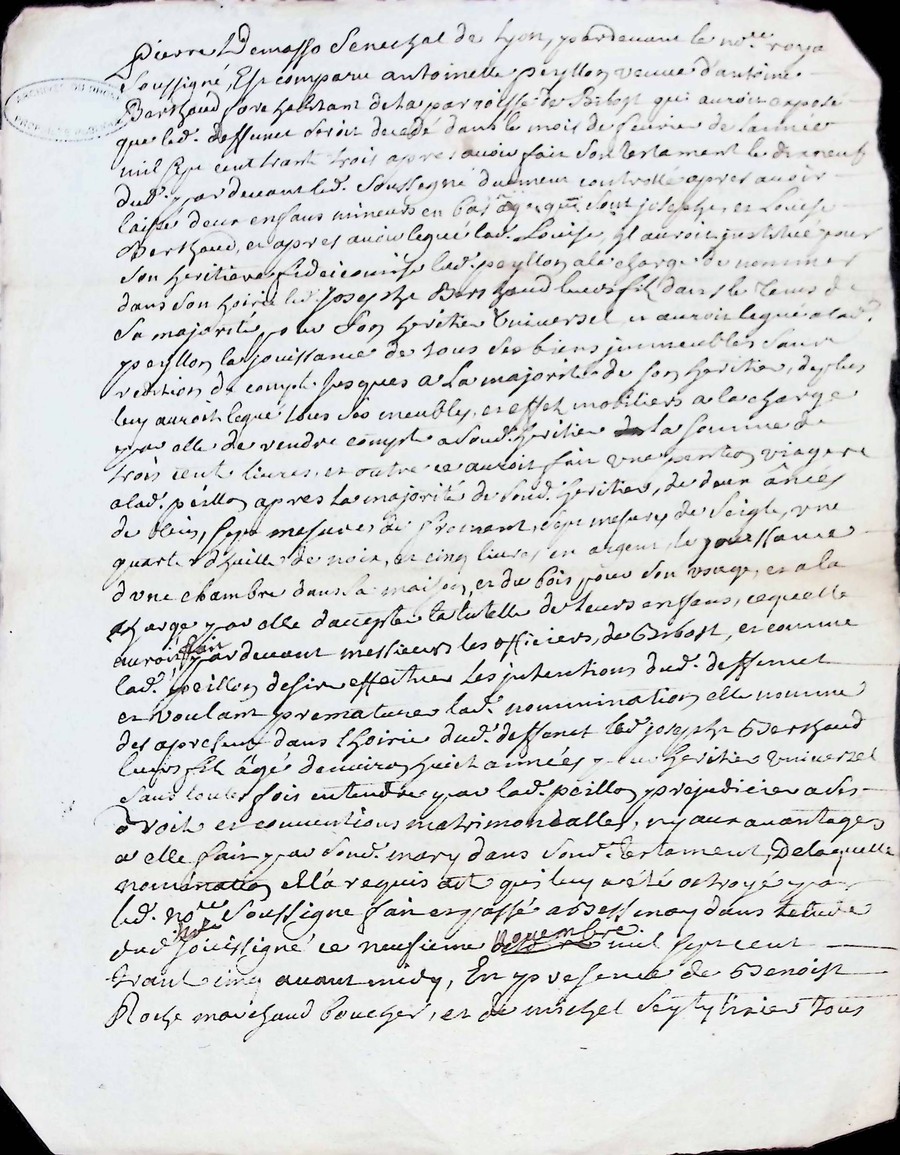 Pierre Demasso Senechal de Lyon, pardevant le no.re roya
Soussigné, Est comparu antoinette peyllon veuve d'antoine
Berthaud, habitant de la parroisse de Bibost qui auroit exposé
que led. deffunct seroit decedé dans le mois de feurier de l'année
mil sept cent trant trois apres avoir fait son testament le dixneuf
dud. pardevant led. Soussigné duement controllé apres avoir
laissé deux enfans mineurs en bas âge, qui sont josephe, et Louise
Berthaud, et apres avoir legué a lad. Louise, Il auroit jnstitué pour
son heritiere fideicomise lad. peyllon a la charge de nommer
dans son hoirie led. Josephe Berthaud leurs fils dans le tems de
sa majorité, pour son heritier Universel, et auroit legué a lad.
peyllon la jouissance de tous ses biens jmmeubles sans
redition de compte jusques a La majorité de son heritier, de plus
luy auroit legué tous ses meubles, et effets mobiliers a la charge
par elle de rendre compte a sond. heritier la somme de
trois cent livres, et outre ce auroit fait une pention viagere
a lad. peillon apres la majorité de sond. heritier, de deux ânées
de vin, sept mesures de froment, sept mesures de seigle, une
quarte d'huille de noix, et cinq livres en argent, la jouissance
d'une chambre dans la maison, et du bois pour son usage, et a la
charge par elle d'accepter la tutelle de leurs enfans, ce quelle
auroit fait pardevant messieurs les officiers, de Bibost, et comme
lad. peillon desire effectuer les jntentions dud. deffunct
et voulant premature lad. nommination elle nomme
des apresent dans l'hoirie dud. deffunct led. joseph Berthaud
leurs fils âgé d'environ huict années pour heritier universel
sans toutes fois entendre par lad. peillon prejudicier a ses
droits et conventions matrimonialles, ny aux avantages
a elle fait par sond. mary dans sond. testament, De laquelle
nomination ella requis act qui luy a été octroyé par
led. no.re Soussigné fait et passé a Bessenay dans letude
dud. no.re soussigné ce neufieme novembre mil sept cent
trant cinq avant midy, En presence de Benoist
Roche marchand boucher, et de michel tous